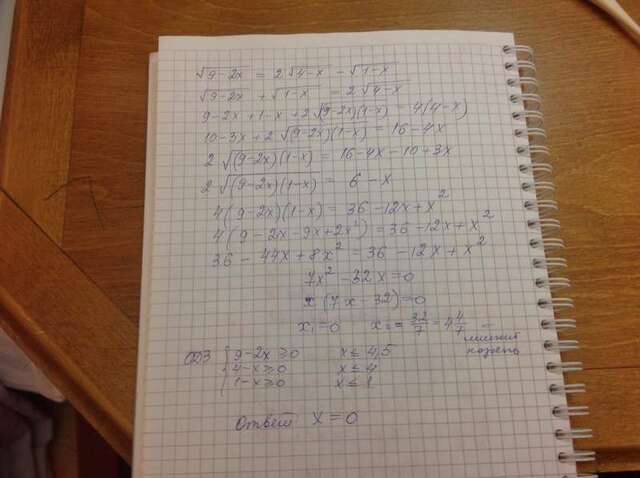 √(9-2x) = 2√(4-x) - √(1-x)
√(9-2x) + √(1-x) = 2√(4-x)
9-2x+1-x+2√((9-2x)(1-x)) = 4(4-x)
10-3x+2√((9-2x)(1-x)) = 16-4x
2√((9-2x)(1-x)) = 16-4x-10+3x
2√((9-2x)(1-x)) = 6-x
4(9-2x)(1-x) = 36-12x+x²
4(9-2x-9x+2x²) = 36-12x+x²
36-44x+8x² = 36-12x+x²
7x²-32x=0
x(7x-32)=0
x₁=0 x₂=32/7=4 4/7 - лишний корень
ОДЗ { 9-2x≥0 x≤4,5
4-x≥0 x≤4
1-x≥0 x≤1
Ответ x=0